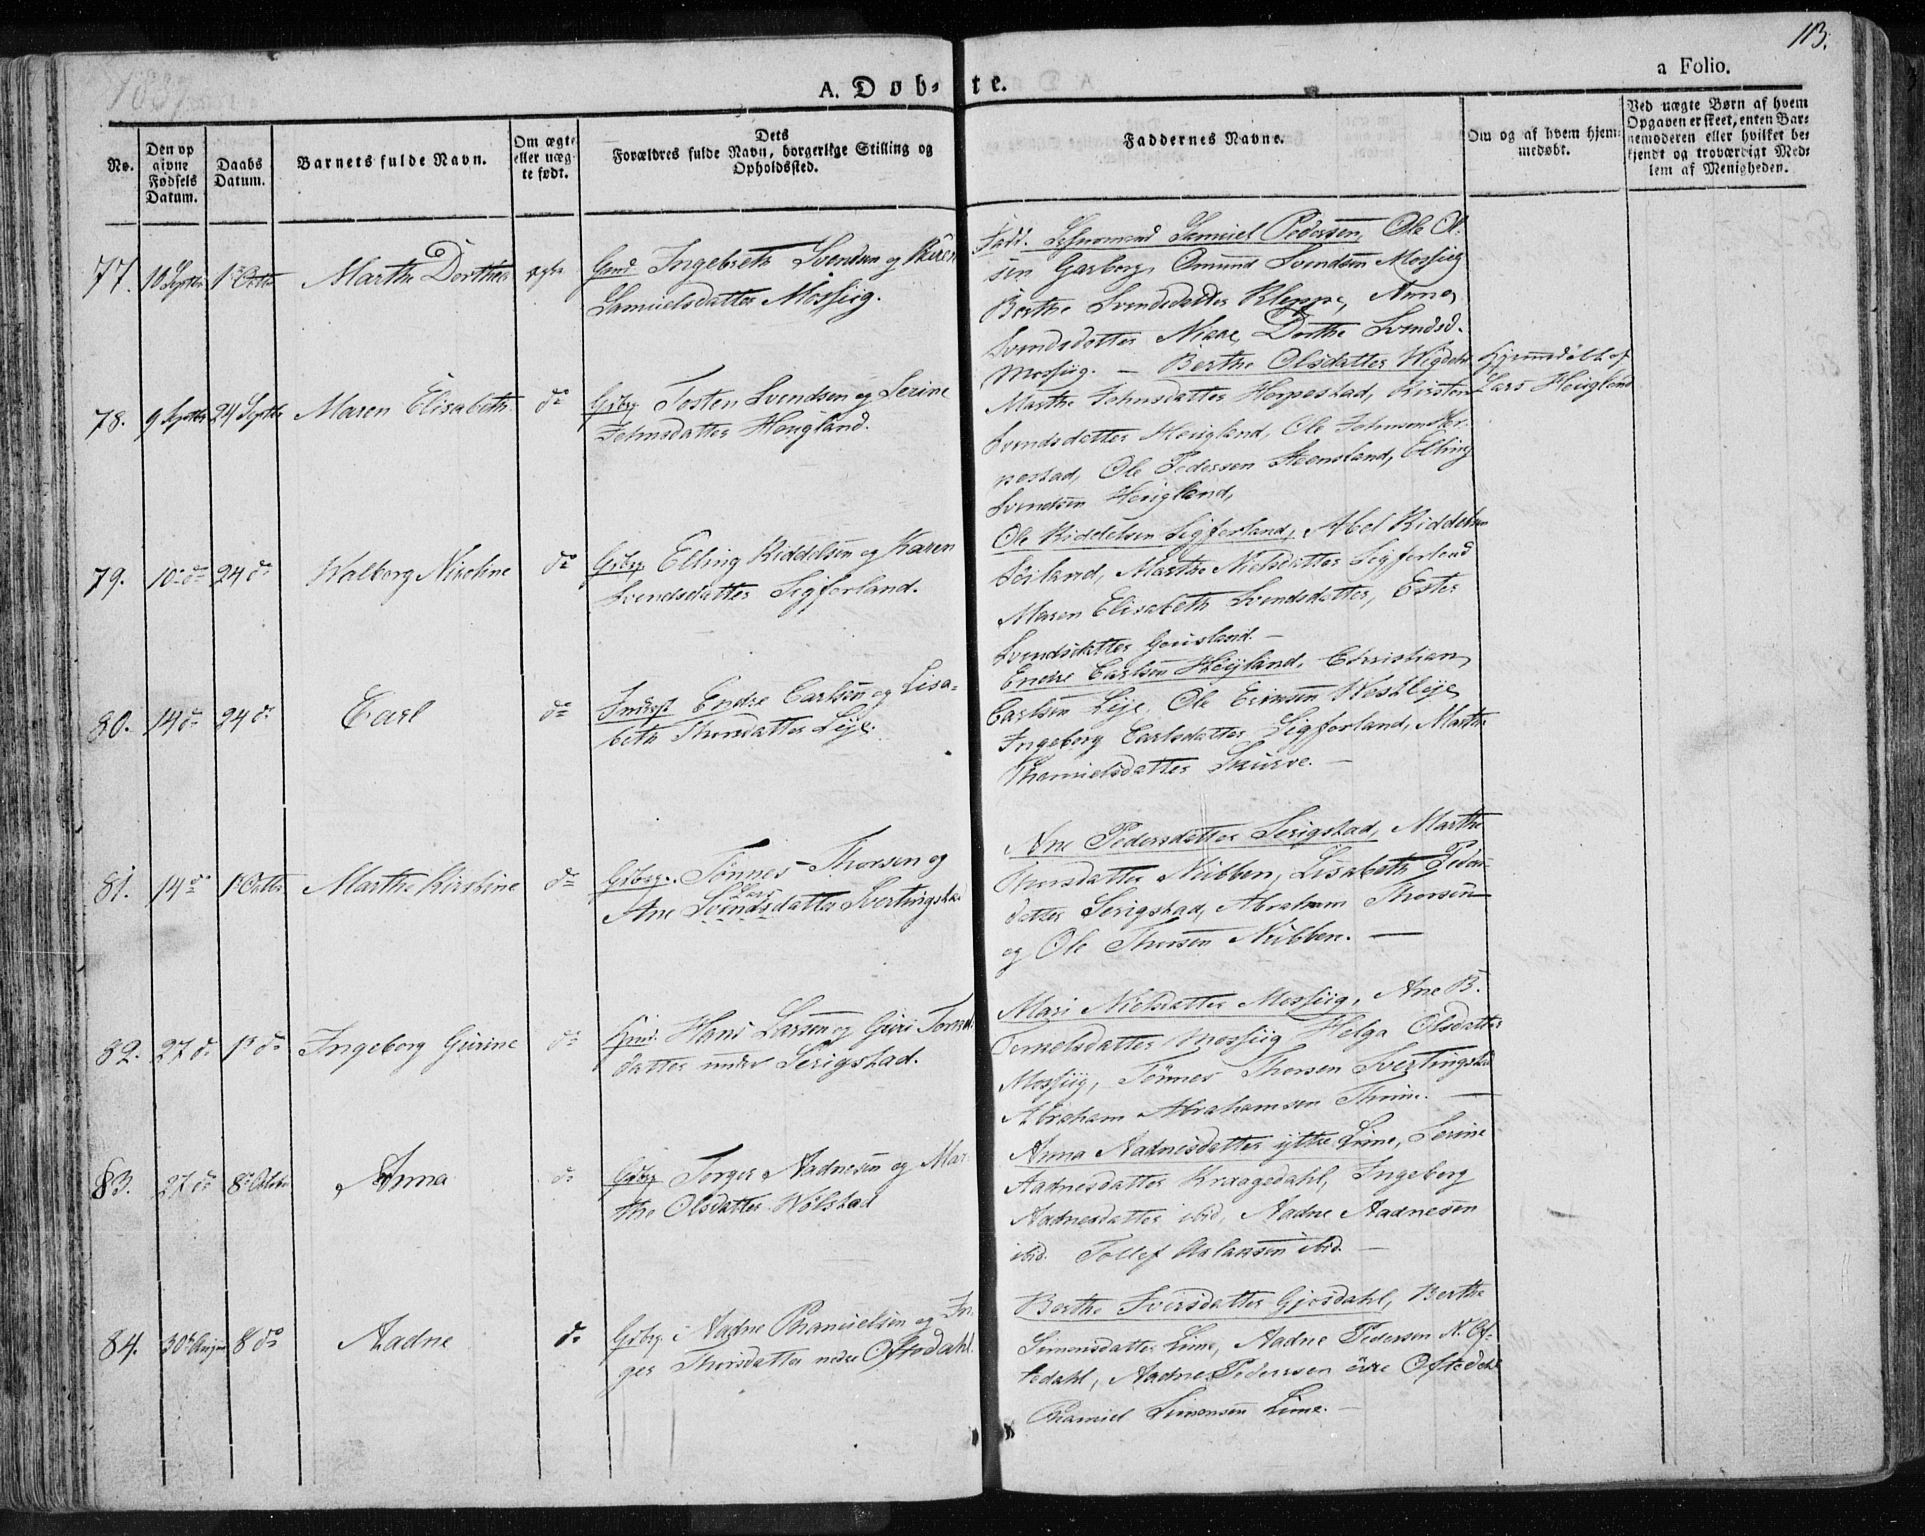 1837
113.
A. Døb-te.
a Folio.
No.
Den op
givne
Fødsels
Datum.
Daabs
Datum.
Barnets fulde Navn.
Om ægte
eller uæg-
te født.
Dets
Forældres fulde Navn, borgerlige Stilling og
Opholdssted.
Faddernes Navne.
Om og af hvem hjem-
medøbt.
Ved uægte Børn af hvem
Opgaven er skeet, enten Bar-
nemoderen eller hvilket be-
kjendt og troværdigt Med-
lem af Menigheden.
77. 10 Septbr 1ste Octbr Marthe Dorthea ægte
Gmd Ingebreth Svendsen og
Samuelsdatter Mossiig.
Fadd. Lehnsmand Samuel Pedersen, Ole Ol-
sen Garborg, Omund Svendsen Mossiig
Berthe Svendsdatter Kleppe, Anna
Svendsdatter Njaae, Dorthe Svendsd.
Mossiig. —
78. 9 Septbr 24 Septbr Maren Elisabeth do
Grbrg Tosten Svendsen og Serine
Johnsdatter Houglånd.
Berthe Olsdatter Wigdehl
Marthe Johnsdatter Horpestad, Kirsten
Svendsdatter Hougland, Ole Johnsen Hor-
pestad, Ole Pedersen Steensland, Elling
Svendsen Hougland,
Hjemmedøbt af
Lars Hougland
79. 10 do 24 do Walborg Nicoline do
Grbrg Elling Riddelsen og Karen
Svendsdatter Sigferland.
Ole Riddelsen Sigferland, Abel Riddelsen
Söiland, Marthe Nielsdatter Sigferland
Maren Elisabeth Svendsdatter, Ester
Svendsdatter Gruisland. —
80. 14 do 24 do Carl do
Endre Carlsen og Lisa-
beth Thorsdatter Lÿe.
Endre Carlsen Höÿland, Christian
Carlsen Lÿe, Ole Ericsen Westlÿe
Ingeborg Carlsdatter Sigferland, Marthe
Thamielsdatter Skurve. —
81. 14 do 1 Octbr Marthe Kirstine do
Grbrg. Tönnes Thorsen og
Lars
Ane Svendsdatter Svertingstad
Ane Pedersdatter Serigstad, Marthe
Thorsdatter Nubben, Lisabeth Peders-
datter Serigstad, Abraham Thorsen
og Ole Thorsen Nubben. —
82. 27 do 1ste do Ingeborg Gurine do
Hmd. Hans Larsen og Guri Tormel
datter under Serigstad.
Mari Nielsdatter Mossiig, Ane B.
Tormelsdatter Mossiig Helga Olsdatter
Mossiig, Tönnes Thorsen Svertingstad
Abraham Abrahamsen Thime. —
83. 27 do 8de October Anna do
Grbrg Torger Aadnesen og Mar-
the Olsdatter Wölstad
Anna Aadnesdatter ÿttre Lime, Serine
Aadnesdatter Kraagedahl, Ingeborg
Aadnesdatter ibid, Aadne Aadnesen
ibid. Tollef Aslaksen ibid. —
84. 30te August 8 do Aadne do
Grbrg. Aadne Thamielsen og In-
ger Thorsdatter nedre Oftedahl.
Berthe Sversdatter Gjesdahl, Berthe
Simonsdatter Lime, Aadne Pedersen N. Of-
tedahl, Aadne Pedersen övre Oftedahl
Thamiel Simonsen Lime. —